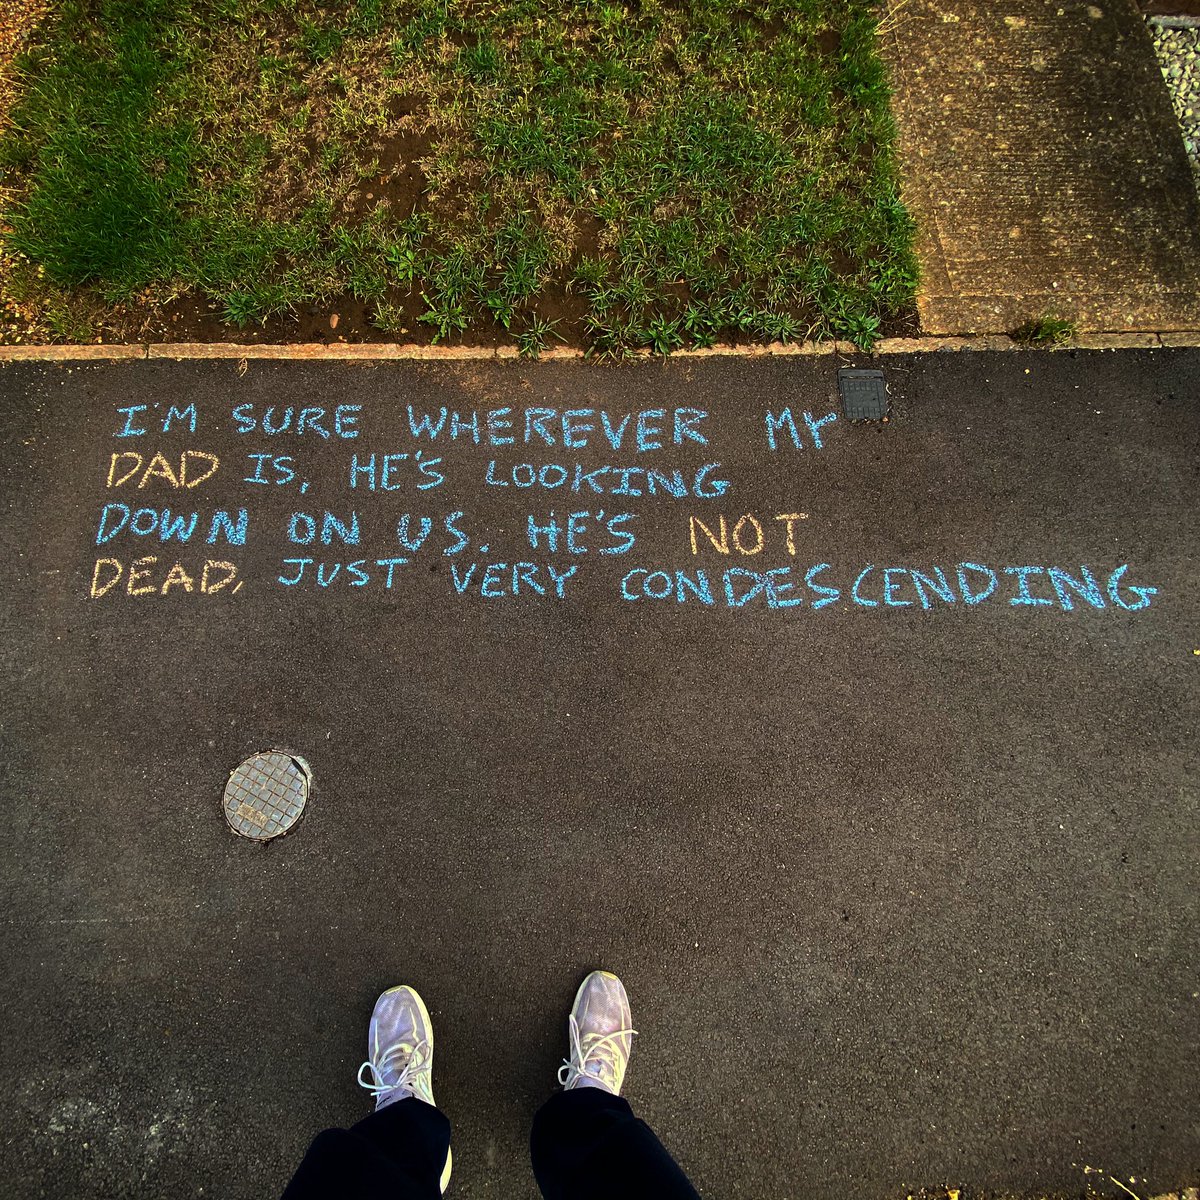 I'M SURE WHEREVER MY
DAD IS, HE'S LOOKING
DOWN ON US. HE'S NOT
DEAD, JUST VERY CONDESCENDING